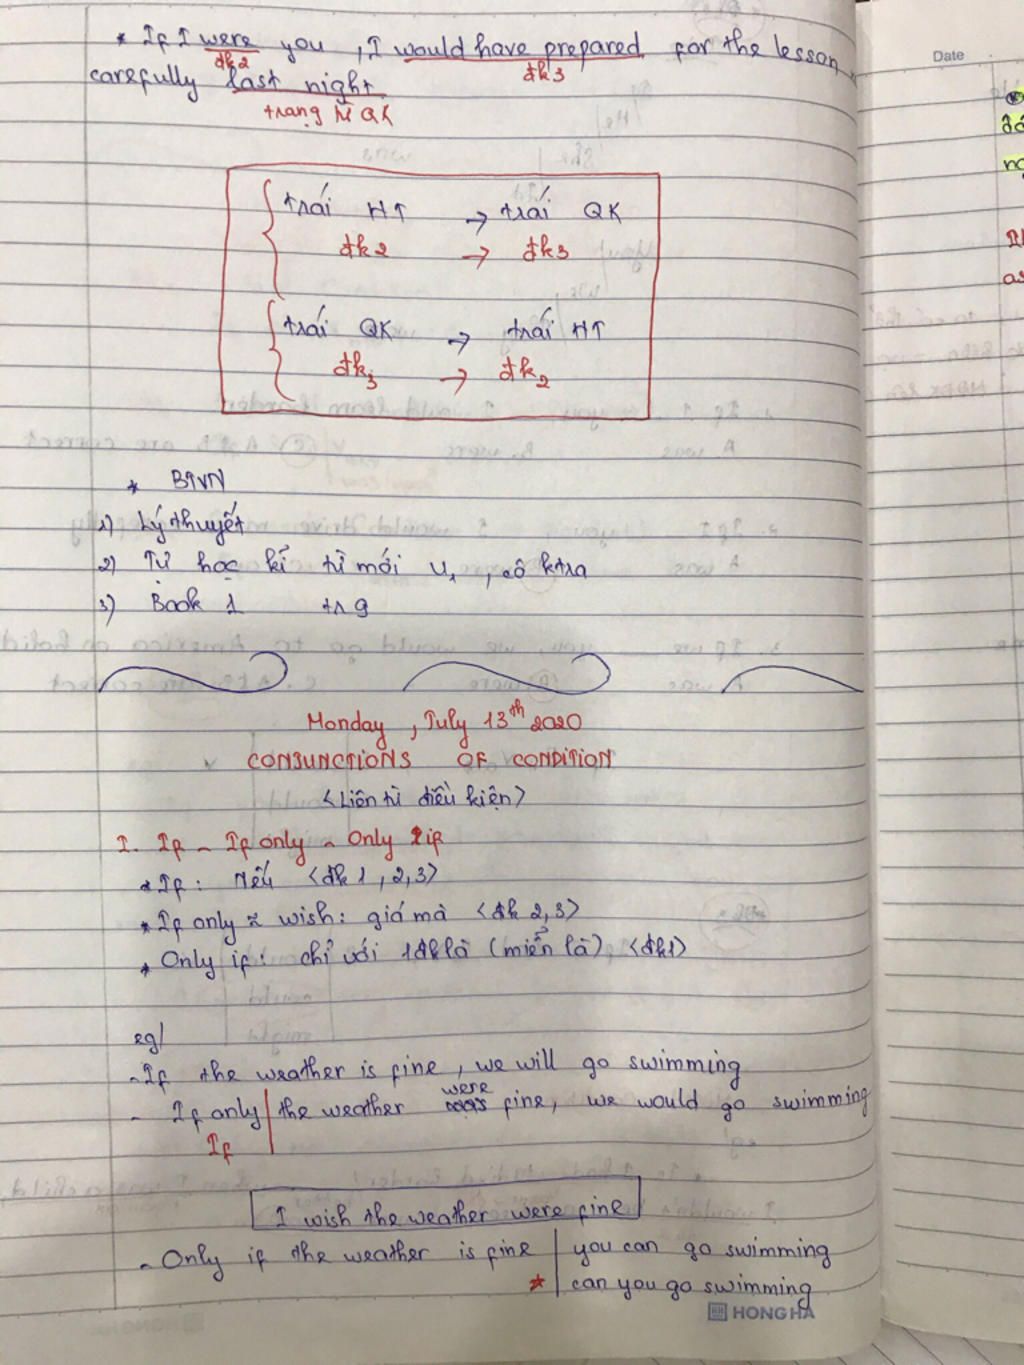 * If I were you, I would have prepared for the lesson
đk2 đk3
carefully last night
trạng từ QK
trái HT → trái QK
đk2 → đk3
trái QK → trái HT
đk3 → đk2
* BTVN
1) Lý thuyết
2) Tự học kĩ từ mới U1, cô ktra
3) Book 1 tr 9
Monday, July 13th 2020
CONJUNCTIONS OF CONDITION
<Liên từ điều kiện>
I. If - If only - Only if
* If: Nếu <đk 1, 2, 3>
* If only ≈ wish: giá mà <đk 2, 3>
* Only if: chỉ với 1 đk là (miễn là) <đk1>
eg/
- If the weather is fine, we will go swimming
were
- If only | the weather fine, we would go swimming
If
I wish the weather were fine
- Only if the weather is fine | you can go swimming
* can you go swimming
HONG HA
Date